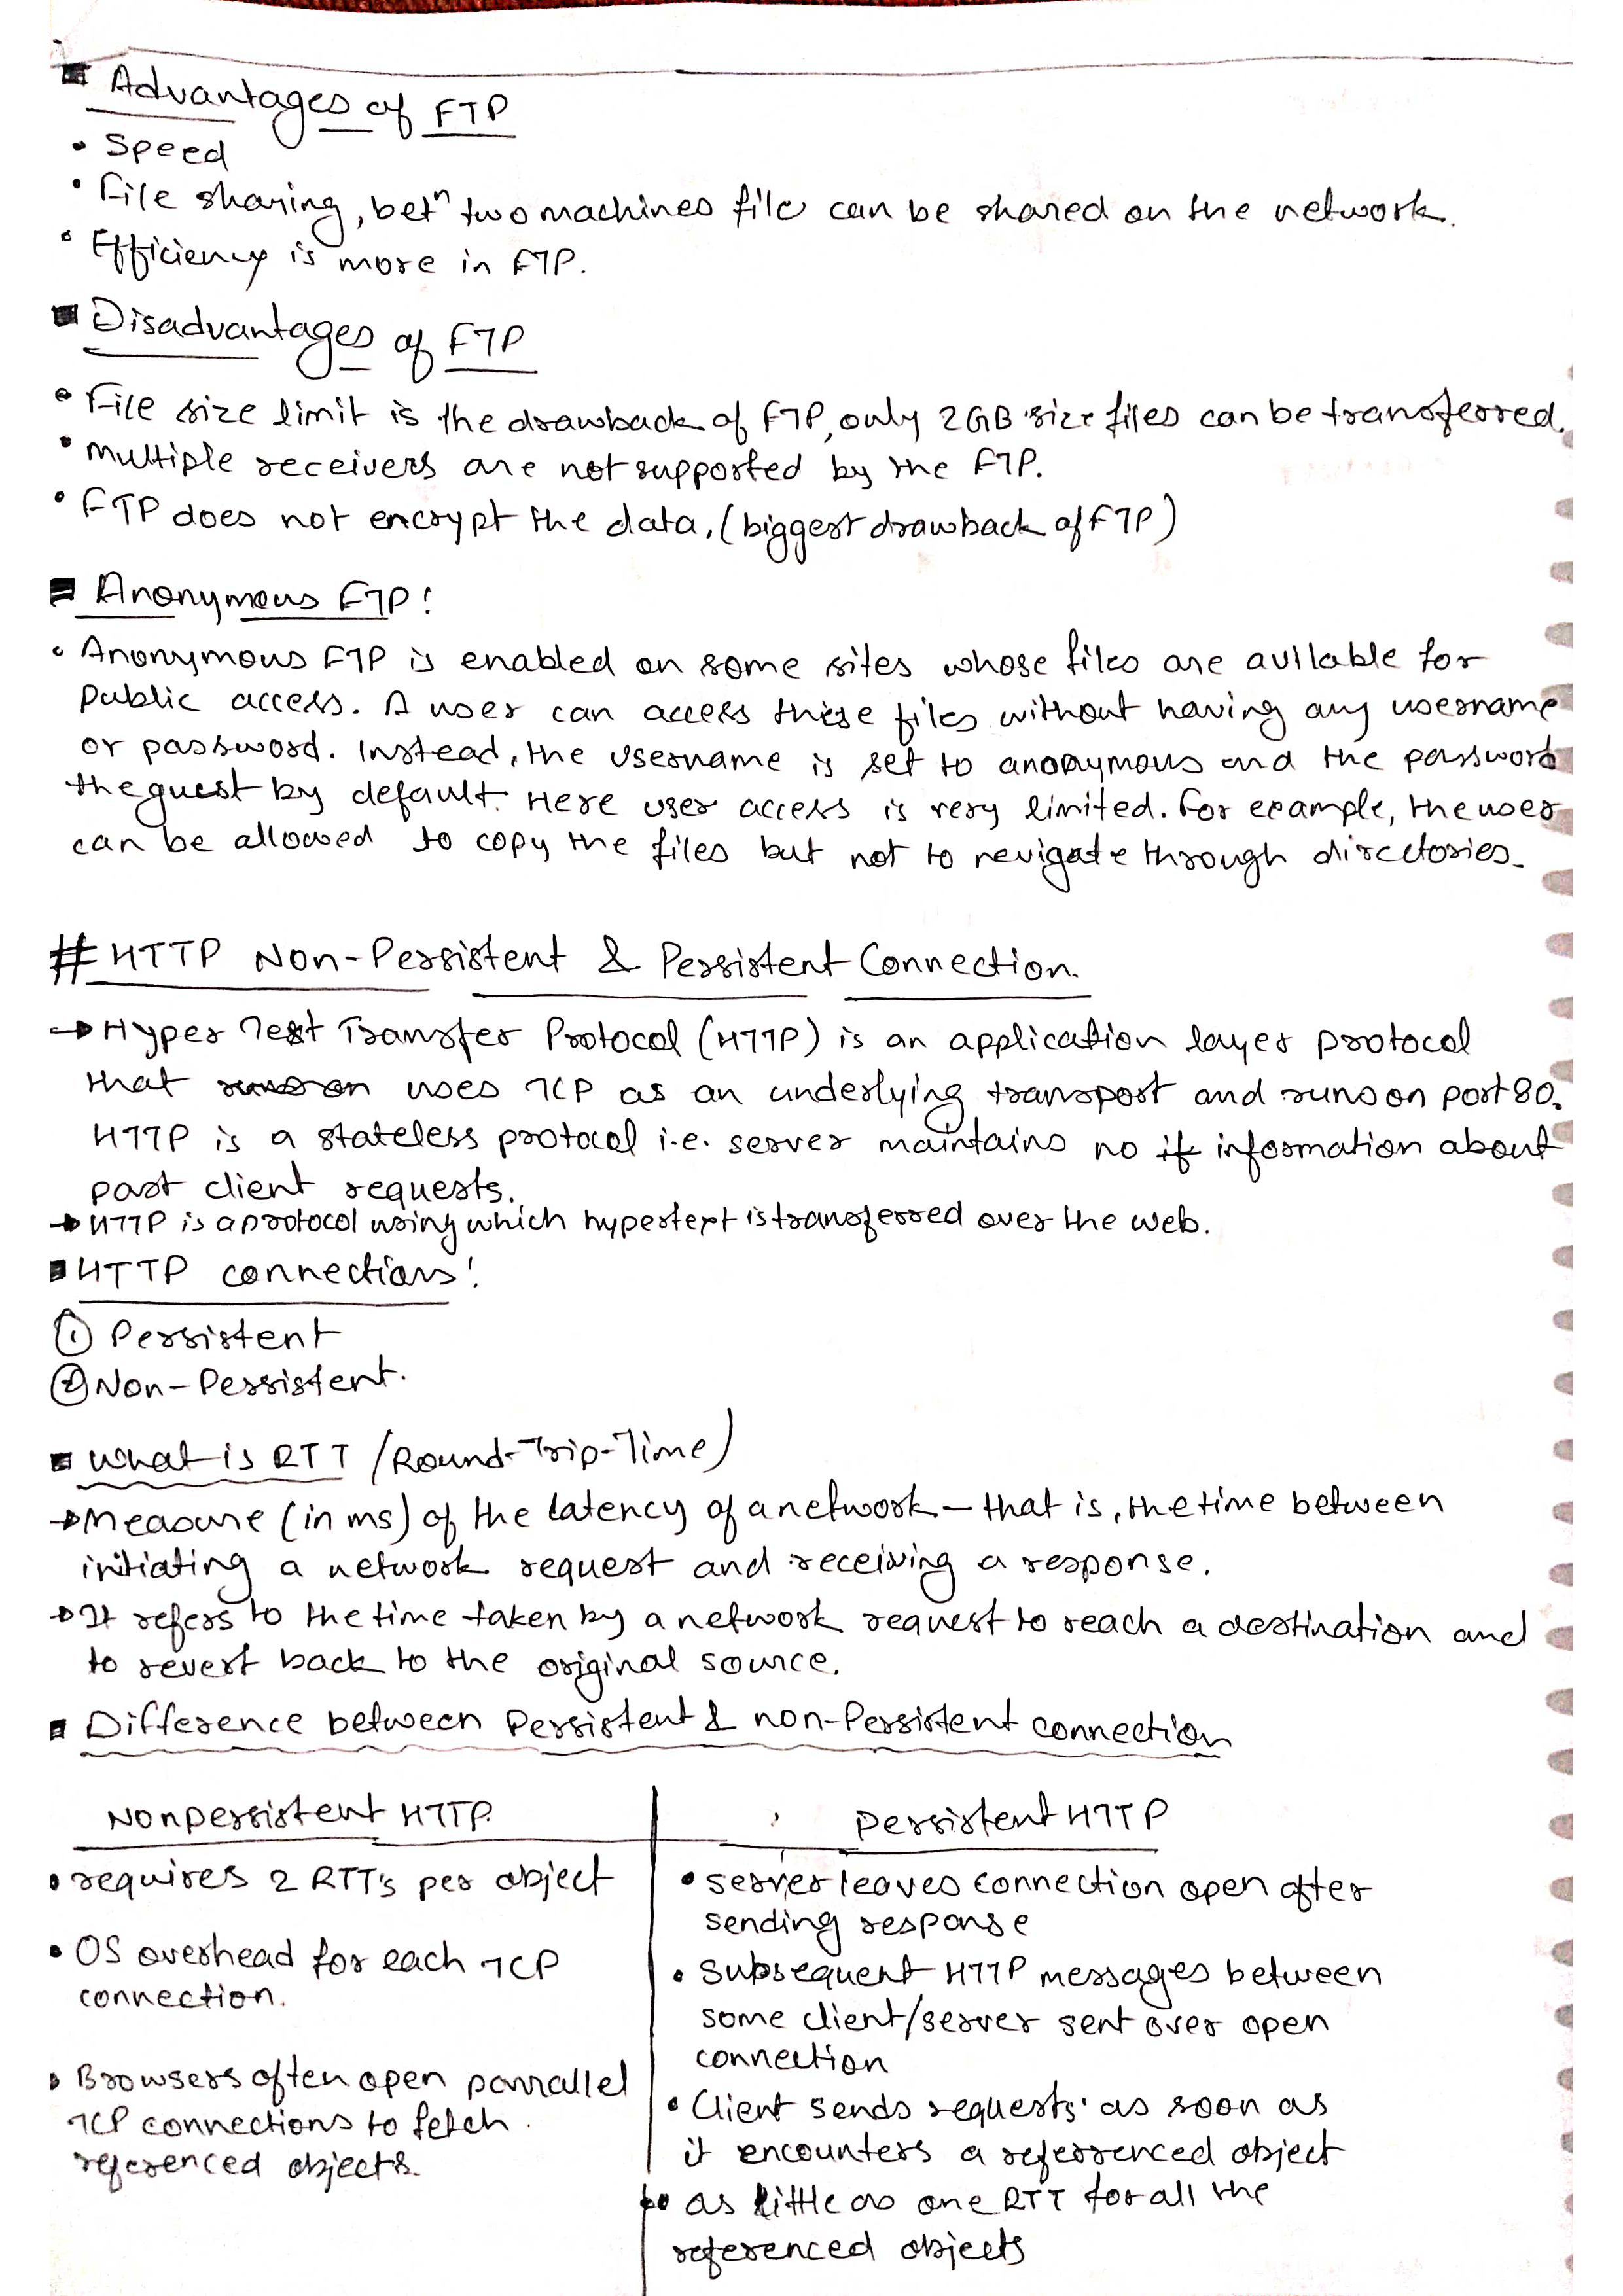 ■ Advantages of FTP
• Speed
• File sharing, betⁿ two machines file can be shared on the network.
• Efficiency is more in FTP.
■ Disadvantages of FTP
• File size limit is the drawback of FTP, only 2GB size files can be transferred.
• multiple receivers are not supported by the FTP.
• FTP does not encrypt the data, (biggest drawback of FTP)
■ Anonymous FTP:
• Anonymous FTP is enabled on some sites whose files are avilable for
public access. A user can access these files without having any username
or password. Instead, the username is set to anonymous and the password
the guest by default. Here user access is very limited. For example, the user
can be allowed to copy the files but not to nevigate through directories.
# HTTP Non-Persistent & Persistent Connection.
→ Hyper Text Transfer Protocol (HTTP) is an application layer protocol
that uses TCP as an underlying transport and runs on port 80.
HTTP is a stateless protocol i.e. server maintains no information about
past client requests.
→ HTTP is a protocol using which hypertext is transferred over the web.
■ HTTP connections:
① Persistent
② Non-Persistent.
■ What is RTT (Round-Trip-Time)
→ Measure (in ms) of the latency of a network – that is, the time between
initiating a network request and receiving a response.
→ It refers to the time taken by a network request to reach a destination and
to revert back to the original source.
■ Difference between Persistent & non-Persistent connection
Nonpersistent HTTP.
• requires 2 RTT's per object
• OS overhead for each TCP
connection.
• Browsers often open parrallel
TCP connections to fetch
referenced objects.
Persistent HTTP
• server leaves connection open after
sending response
• subsequent HTTP messages between
some client/server sent over open
connection
• Client sends requests as soon as
it encounters a referrenced object
• as little as one RTT for all the
referenced objects